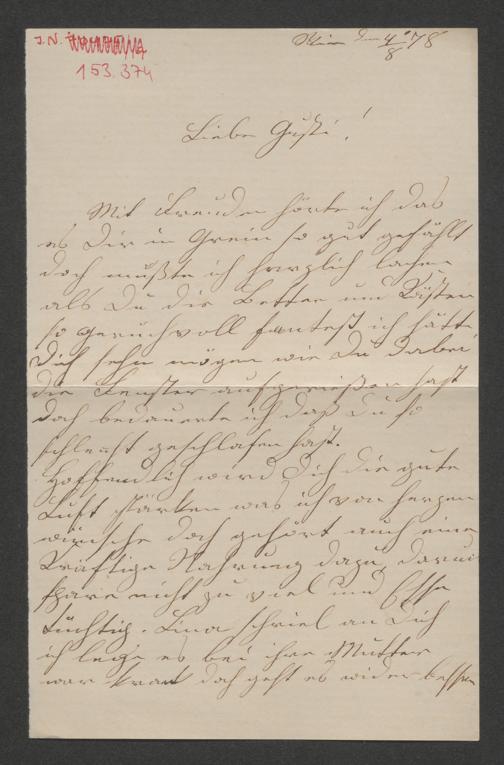 J. N.
153.374
Wien den 4/8 '78
Liebe Gusti!
Mit Freuden hörte ich das
es Dir in Grein so gut gefählt
doch mußte ich herzlich lachen
als Du die Better und Kästen
so geruchvoll fantest ich hätte
Dich sehn mögen wie Du dabei
die Fenster aufgerießen hast
doch bedauerte ich daß Du so
schlecht geschlafen hast.
Hoffendlich wird Dich die gute
Luft stärken was ich von herzen
wünsche doch gehört auch eine
kräftige Nahrung dazu, darum
spare nicht zu viel und Esse
tüchtig. Lina schrieb an Dich
ich lege es bei ihre Mutter
war krank doch geht es wider besser